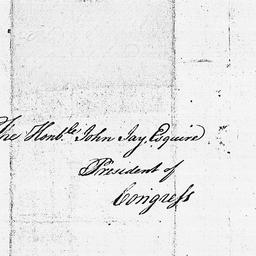 The Honble. John Jay Esquire
President of
Congress